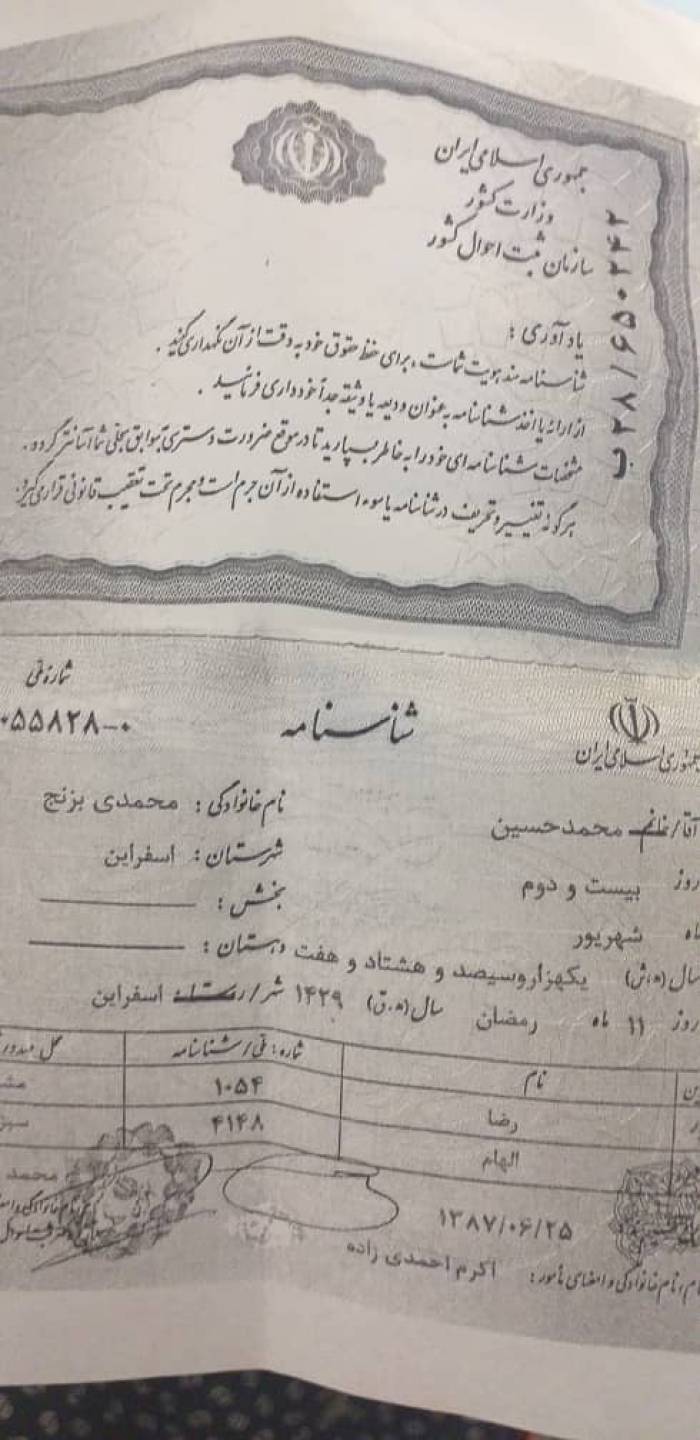 جمهوری اسلامی ایران
وزارت کشور
سازمان ثبت احوال کشور
ب ۲۸/۶۵۰۲۴۲
یادآوری :
شناسنامه سند هویت شماست ، برای حفظ حقوق خود به دقت از آن نگهداری کنید .
از ارائه یا اخذ شناسنامه به عنوان ودیعه یا وثیقه جداً خودداری فرمائید .
مشخصات شناسنامه ای خود را به خاطر بسپارید تا در موقع ضرورت دسترسی به سوابق سجلی شما آسانتر گردد .
هر گونه تغییر و تحریف در شناسنامه یا سوء استفاده از آن جرم است و مجرم تحت تعقیب قانونی قرار می گیرد .
جمهوری اسلامی ایران
شناسنامه
شماره ملی
۰۵۵۸۲۸-۰
آقا/خانم محمدحسین
نام خانوادگی : محمدی بزنج
روز بیست و دوم
شهرستان : اسفراین
ماه شهریور
بخش :
سال (ه.ش) یکهزاروسیصد و هشتاد و هفت
دهستان :
روز ۱۱ ماه رمضان سال (ه.ق) ۱۴۲۹ شهر/روستا اسفراین
نام شماره : ملی/شناسنامه محل صدور
رضا ۱۰۵۴
الهام ۴۱۴۸
۱۳۸۷/۰۶/۲۵
محمد
نام، نام خانوادگی و امضای مأمور : اکرم احمدی زاده